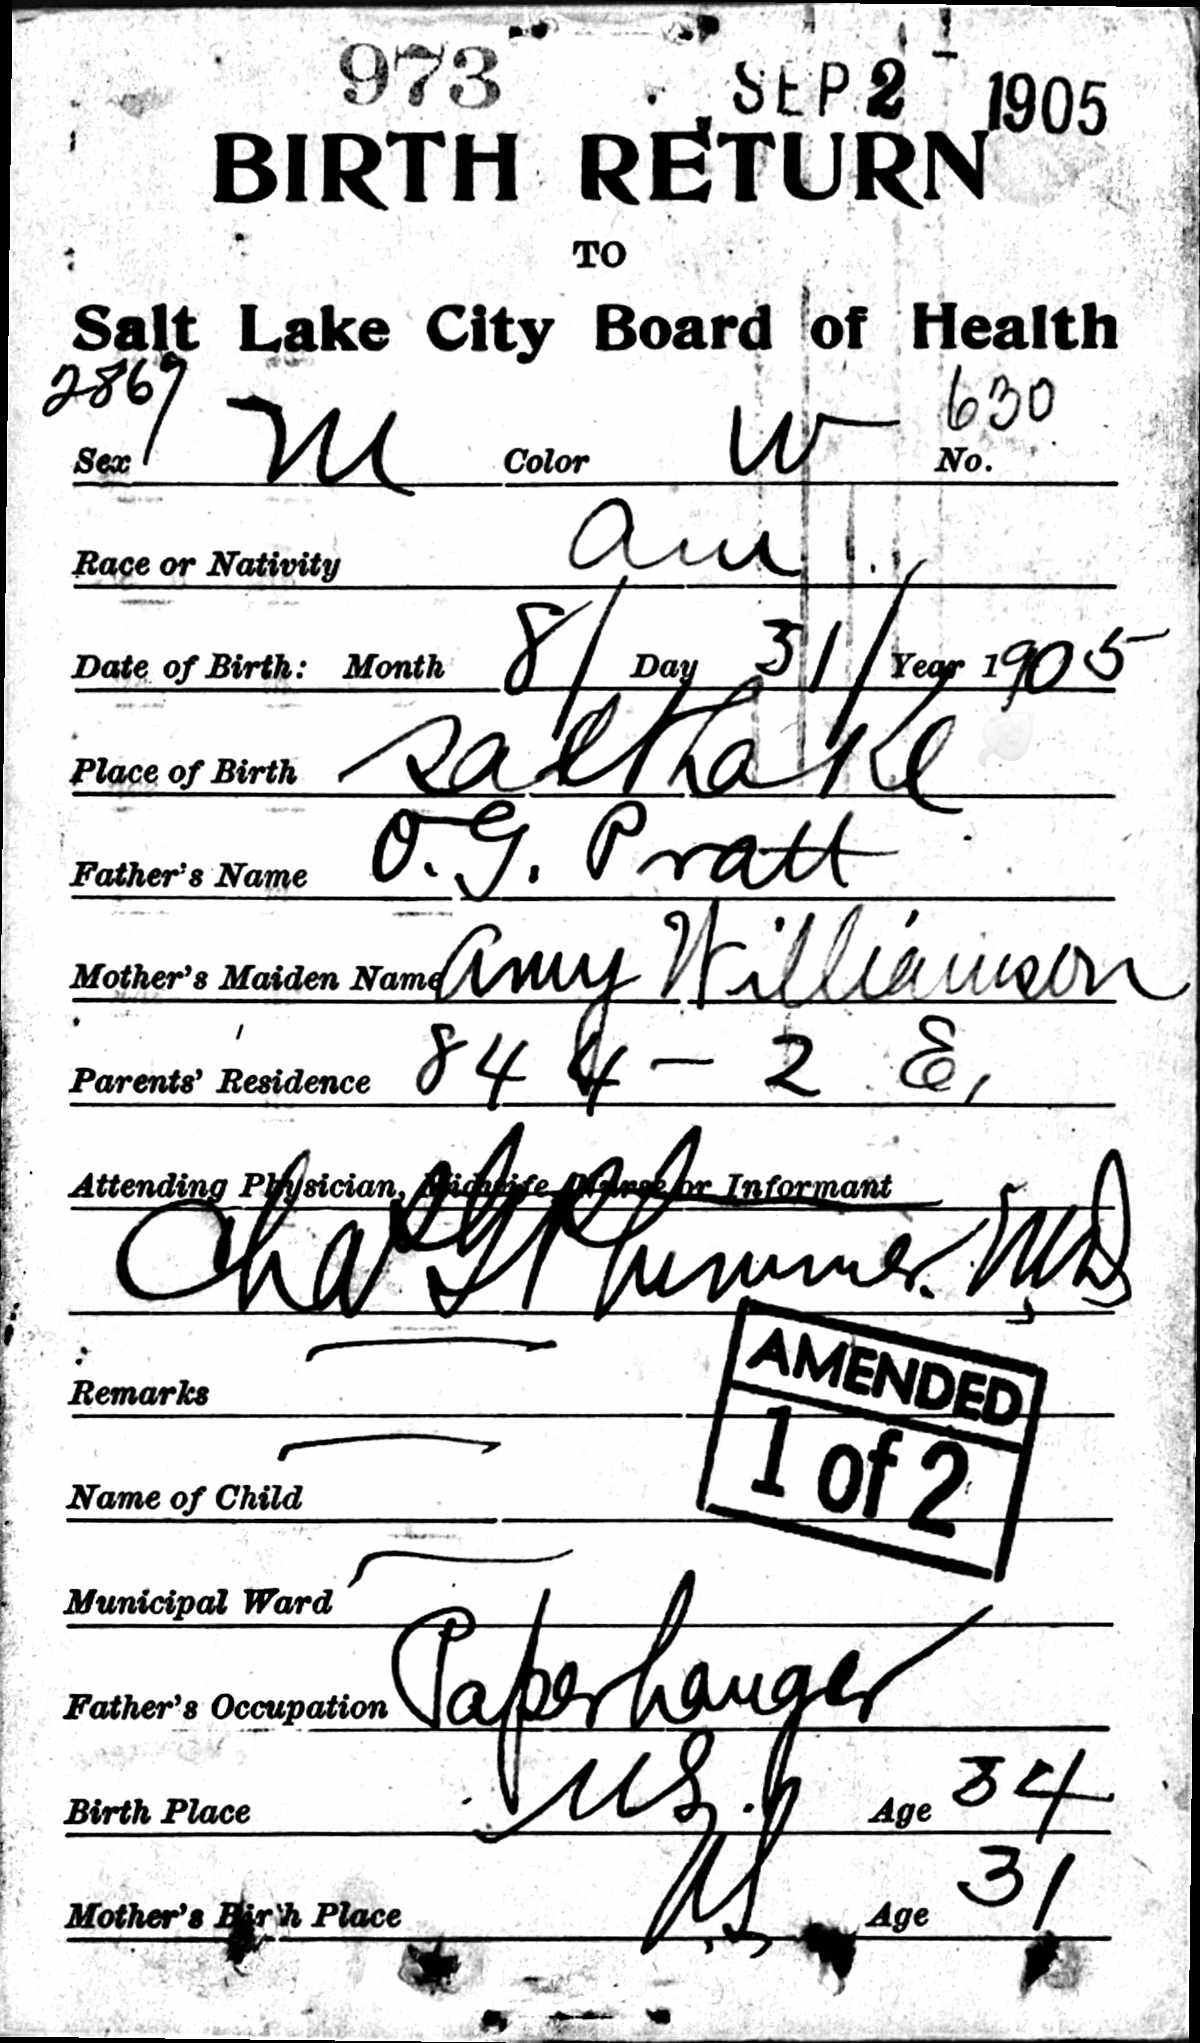 973 SEP 2 1905
BIRTH RETURN
TO
Salt Lake City Board of Health
2867 630
Sex M Color W No.
Race or Nativity Am
Date of Birth: Month 8/ Day 31/ Year 1905
Place of Birth Salt Lake
Father's Name O. G. Pratt
Mother's Maiden Name Amy Williamson
Parents' Residence 844 - 2 E,
Attending Physician, Midwife Nurse or Informant
Chas G Plummer M.D.
Remarks
AMENDED
1 of 2
Name of Child
Municipal Ward
Father's Occupation Paperhanger
Birth Place U.S. Age 34
Mother's Birth Place U.S. Age 31